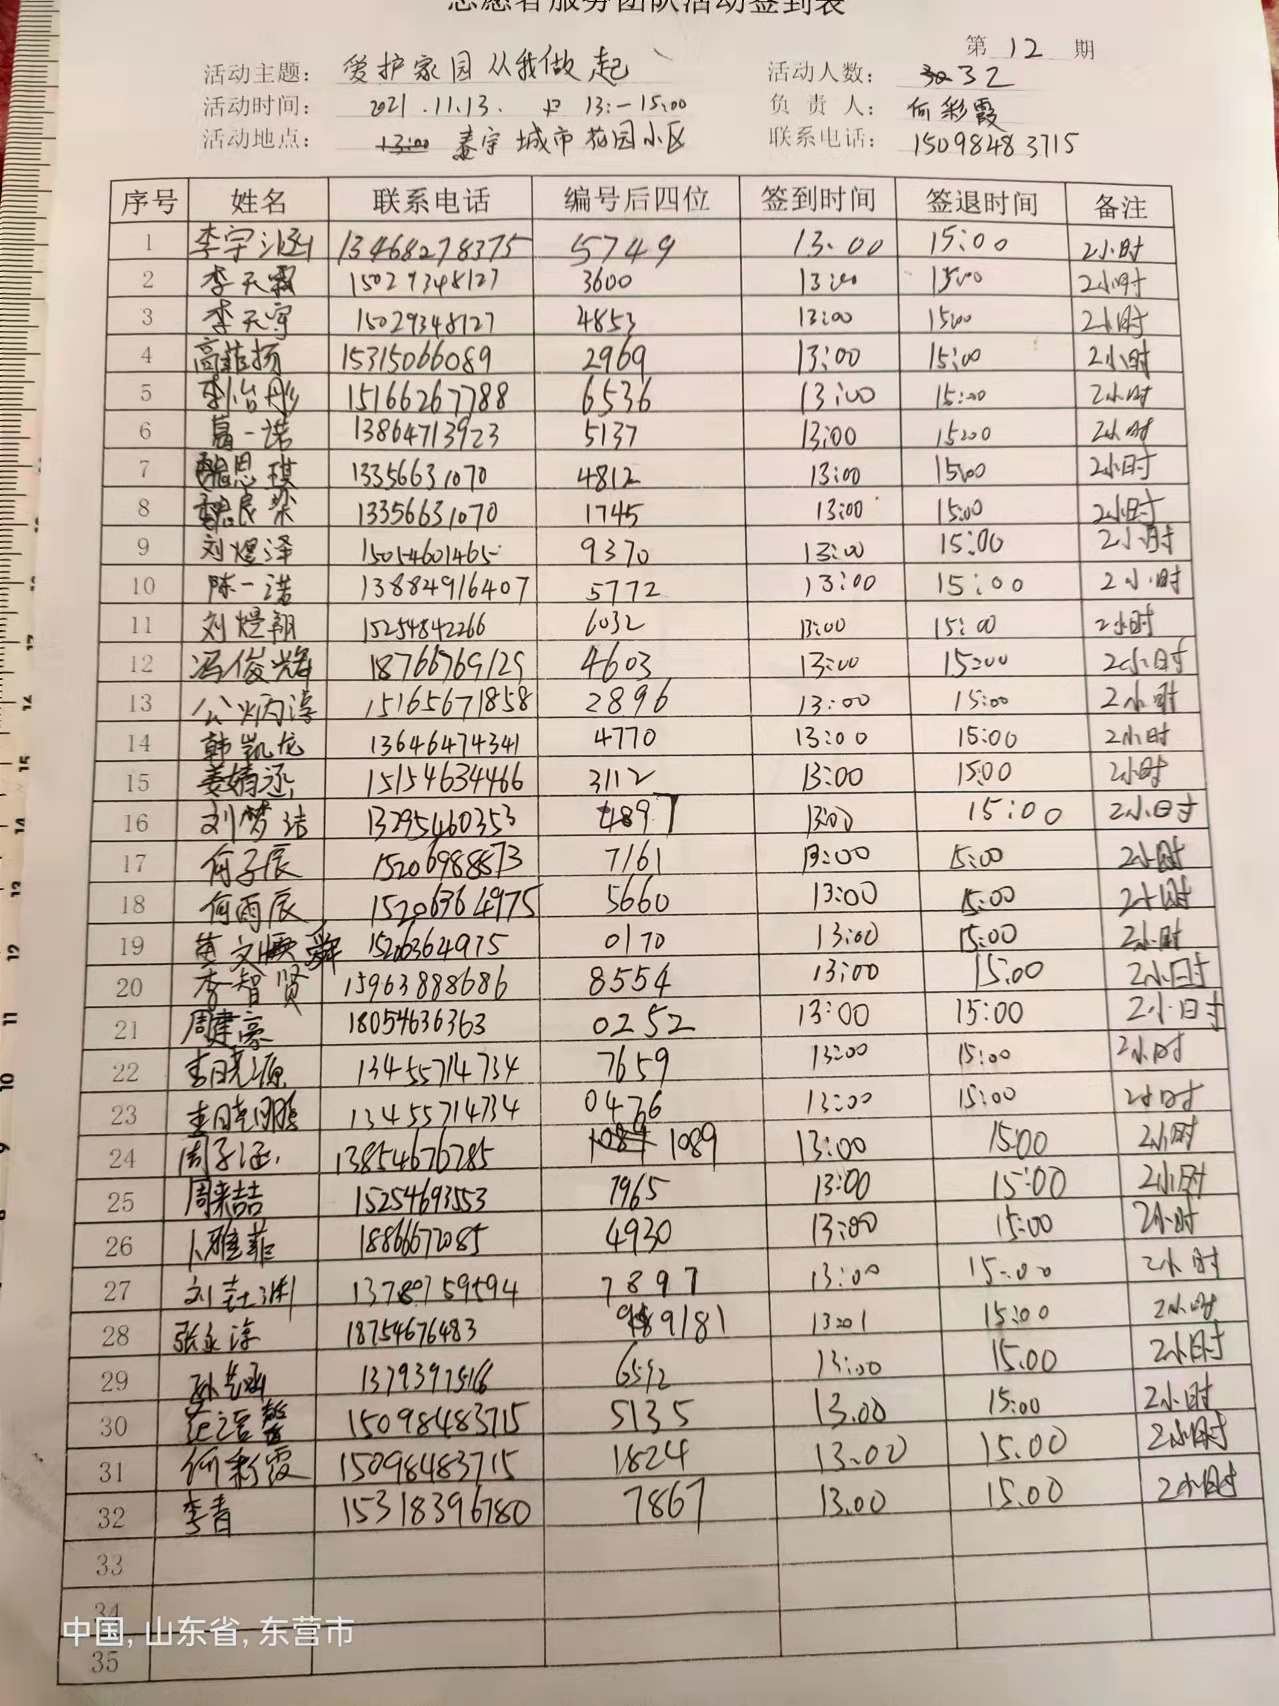 志愿者服务团队活动签到表
第 12 期
活动主题： 爱护家园从我做起 活动人数： 32
活动时间： 2021.11.13. 13:-15:00 负责人： 何彩霞
活动地点： 泰宇城市花园小区 联系电话： 15098483715
序号 姓名 联系电话 编号后四位 签到时间 签退时间 备注
1 李宇涵 13468278375 5749 13.00 15:00 2小时
2 李天霖 15029348127 3600 13:00 15:00 2小时
3 李天宇 15029348127 4853 13:00 15:00 2小时
4 高菲扬 15315066089 2969 13:00 15:00 2小时
5 李怡彤 15166267788 6536 13:00 15:00 2小时
6 葛一诺 13864713923 5137 13:00 15:00 2小时
7 魏思琪 13356631070 4812 13:00 15:00 2小时
8 魏良梁 13356631070 1745 13:00 15:00 2小时
9 刘煜泽 15054601465 9370 13:00 15:00 2小时
10 陈一诺 13884916407 5772 13:00 15:00 2小时
11 刘煜翔 15254842266 6032 13:00 15:00 2小时
12 冯俊辉 18766769129 4603 13:00 15:00 2小时
13 公炳淳 15165671858 2896 13:00 15:00 2小时
14 韩凯龙 13646474341 4770 13:00 15:00 2小时
15 姜婧涵 15154634466 3112 13:00 15:00 2小时
16 刘梦洁 13295460353 4897 13:00 15:00 2小时
17 何子辰 15206988873 7161 13:00 15:00 2小时
18 何雨辰 15206364975 5660 13:00 15:00 2小时
19 15206364975 0170 13:00 15:00 2小时
20 李智贤 15963888686 8554 13:00 15:00 2小时
21 周建豪 18054636363 0252 13:00 15:00 2小时
22 李晓源 13455714734 7659 13:00 15:00 2小时
23 李晓鹏 13455714734 0476 13:00 15:00 2小时
24 周子涵 13854676785 1089 13:00 15:00 2小时
25 周来喆 15254693553 7965 13:00 15:00 2小时
26 卜雅菲 18866672085 4930 13:00 15:00 2小时
27 13780759594 7897 13:00 15:00 2小时
28 张永淳 18754676483 9181 13:01 15:00 2小时
29 孙艺涵 13793971516 6592 13:00 15.00 2小时
30 范语馨 15098483715 5135 13.00 15:00 2小时
31 何彩霞 15098483715 1824 13:00 15.00 2小时
32 李青 15318396780 7867 13.00 15.00 2小时
33
34
中国, 山东省, 东营市
35